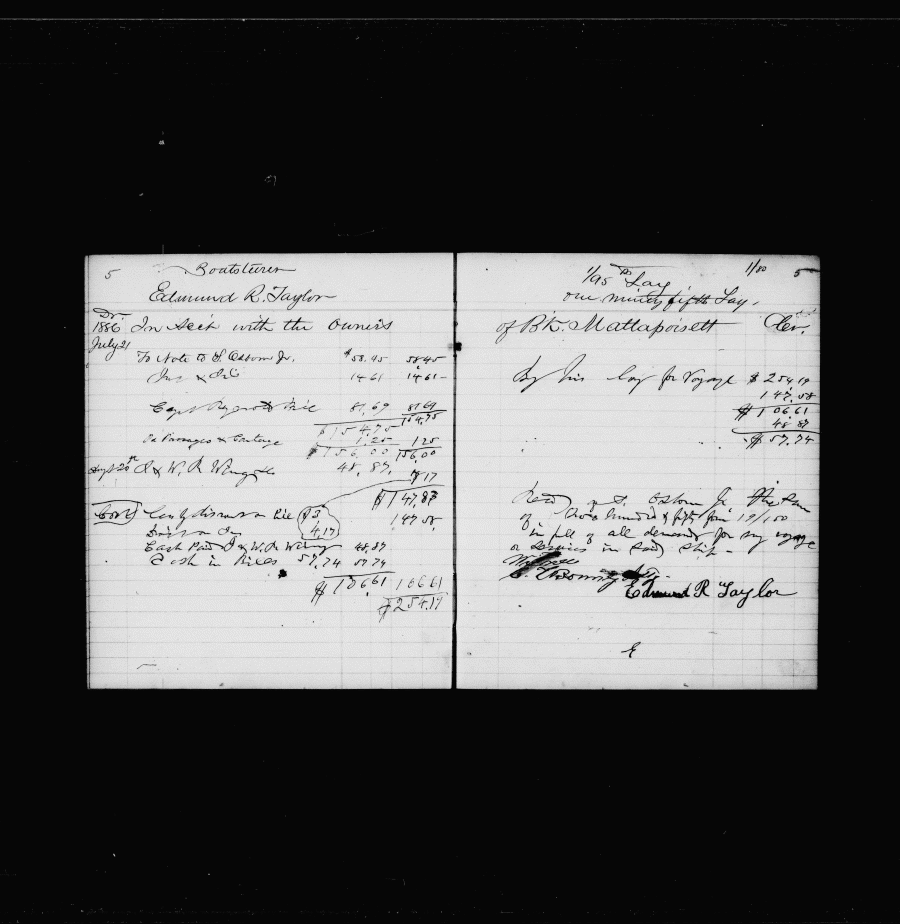 5 Boatsteerer
Edmund R. Taylor
Dr.
1886 In Acct with the Owners
July 21
To Note to S. Osborn Jr. $58.45 58.45
Ins & 14.61 14.61
Capt 81.69 81.69
$154.75 154.75
Pd Passages & Cartage 1.25 1.25
$156.00 156.00
Sept 20th J & W. R. Wing & Co 48.87
8.17
$147.83
Cont 147.58
discount on $3
4.17
Cash Paid J & W. R. Wing 48.87
Cash in Bills 57.74 57.74
$106.61 106.61
$254.19
1/95th Lay 1/80 5
one ninety fifth Lay.
of Bk. Mattapoisett Cr.
By his lay for Voyage $254.19
147.58
$106.61
48.87
$57.74
Recd of S. Osborn Jr the Sum
of two hundred & fifty four 19/100
in full of all demands for my voyage
or services in said Ship -
Witness
Edmund R Taylor